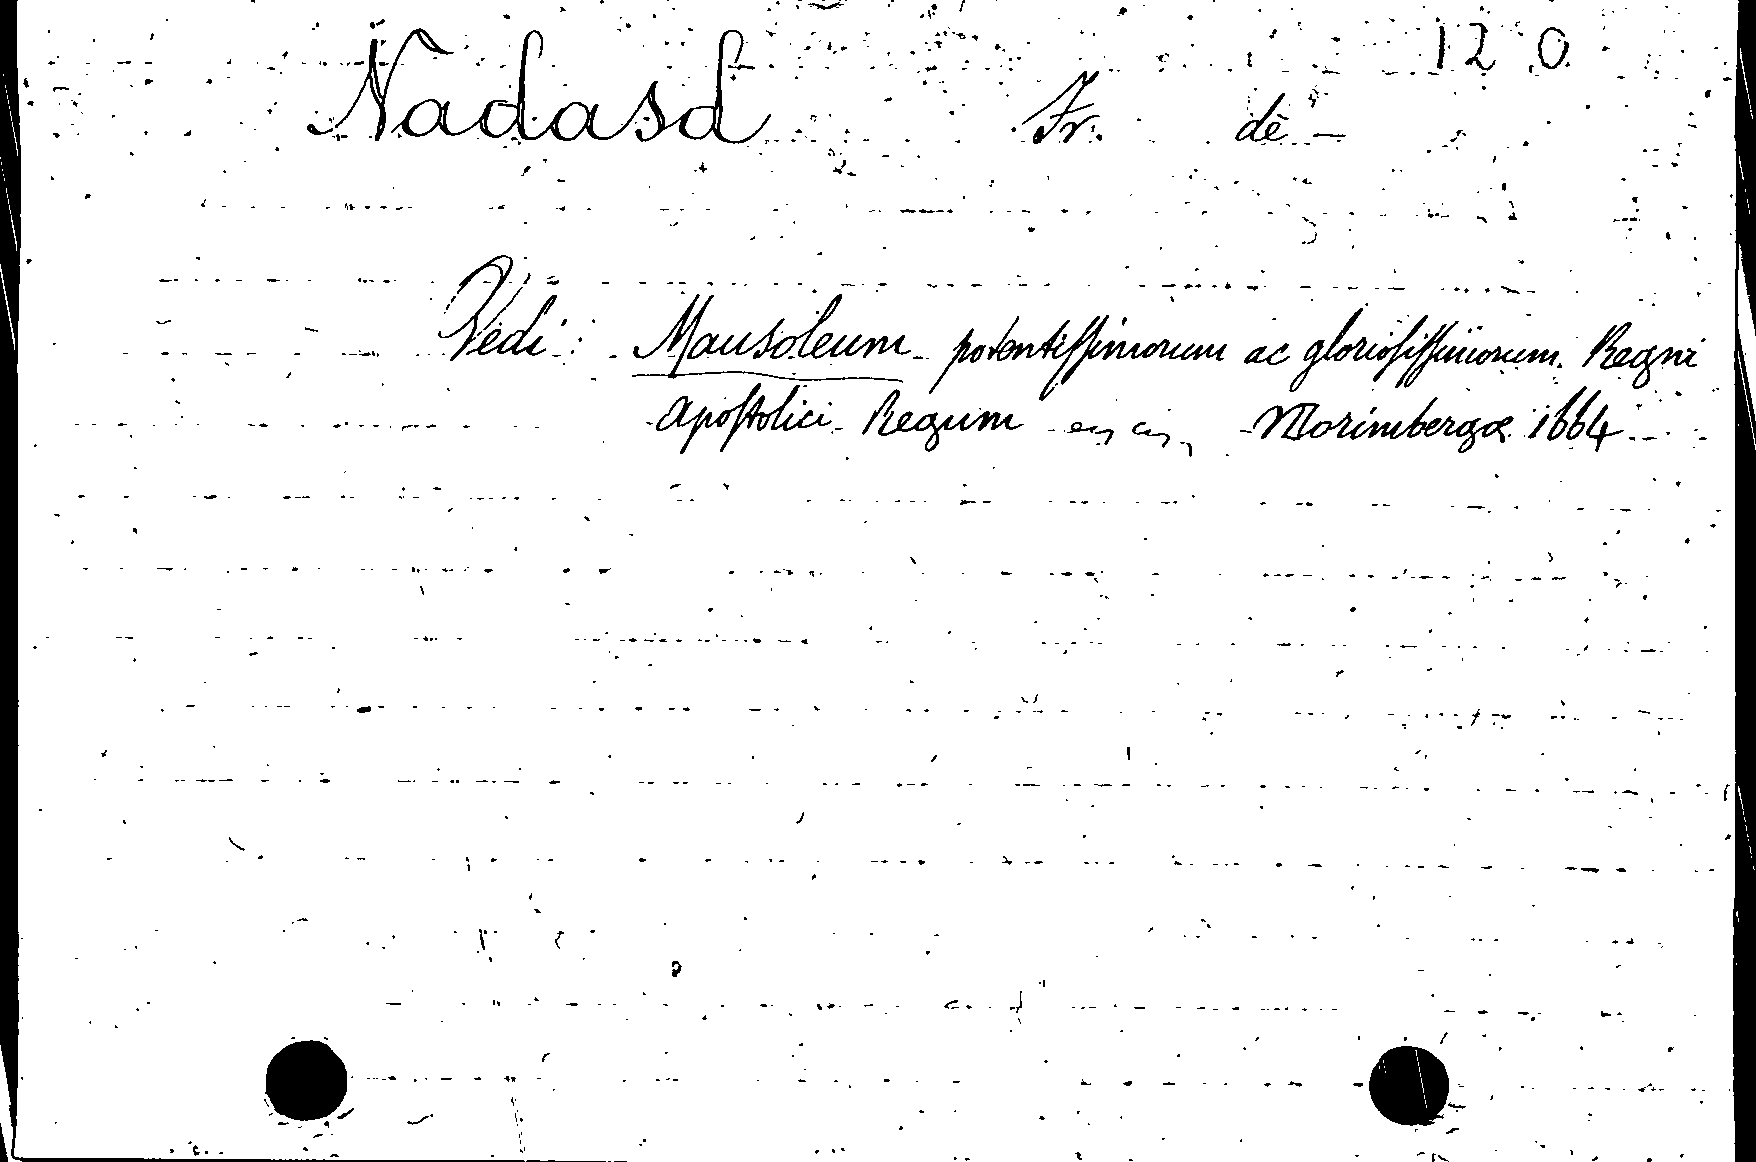 12 0
Nadasd Fr. de —
Vedi: Mausoleum potentissimorum ac gloriosissimorum Regni
Apostolici Regum Norimbergæ 1664